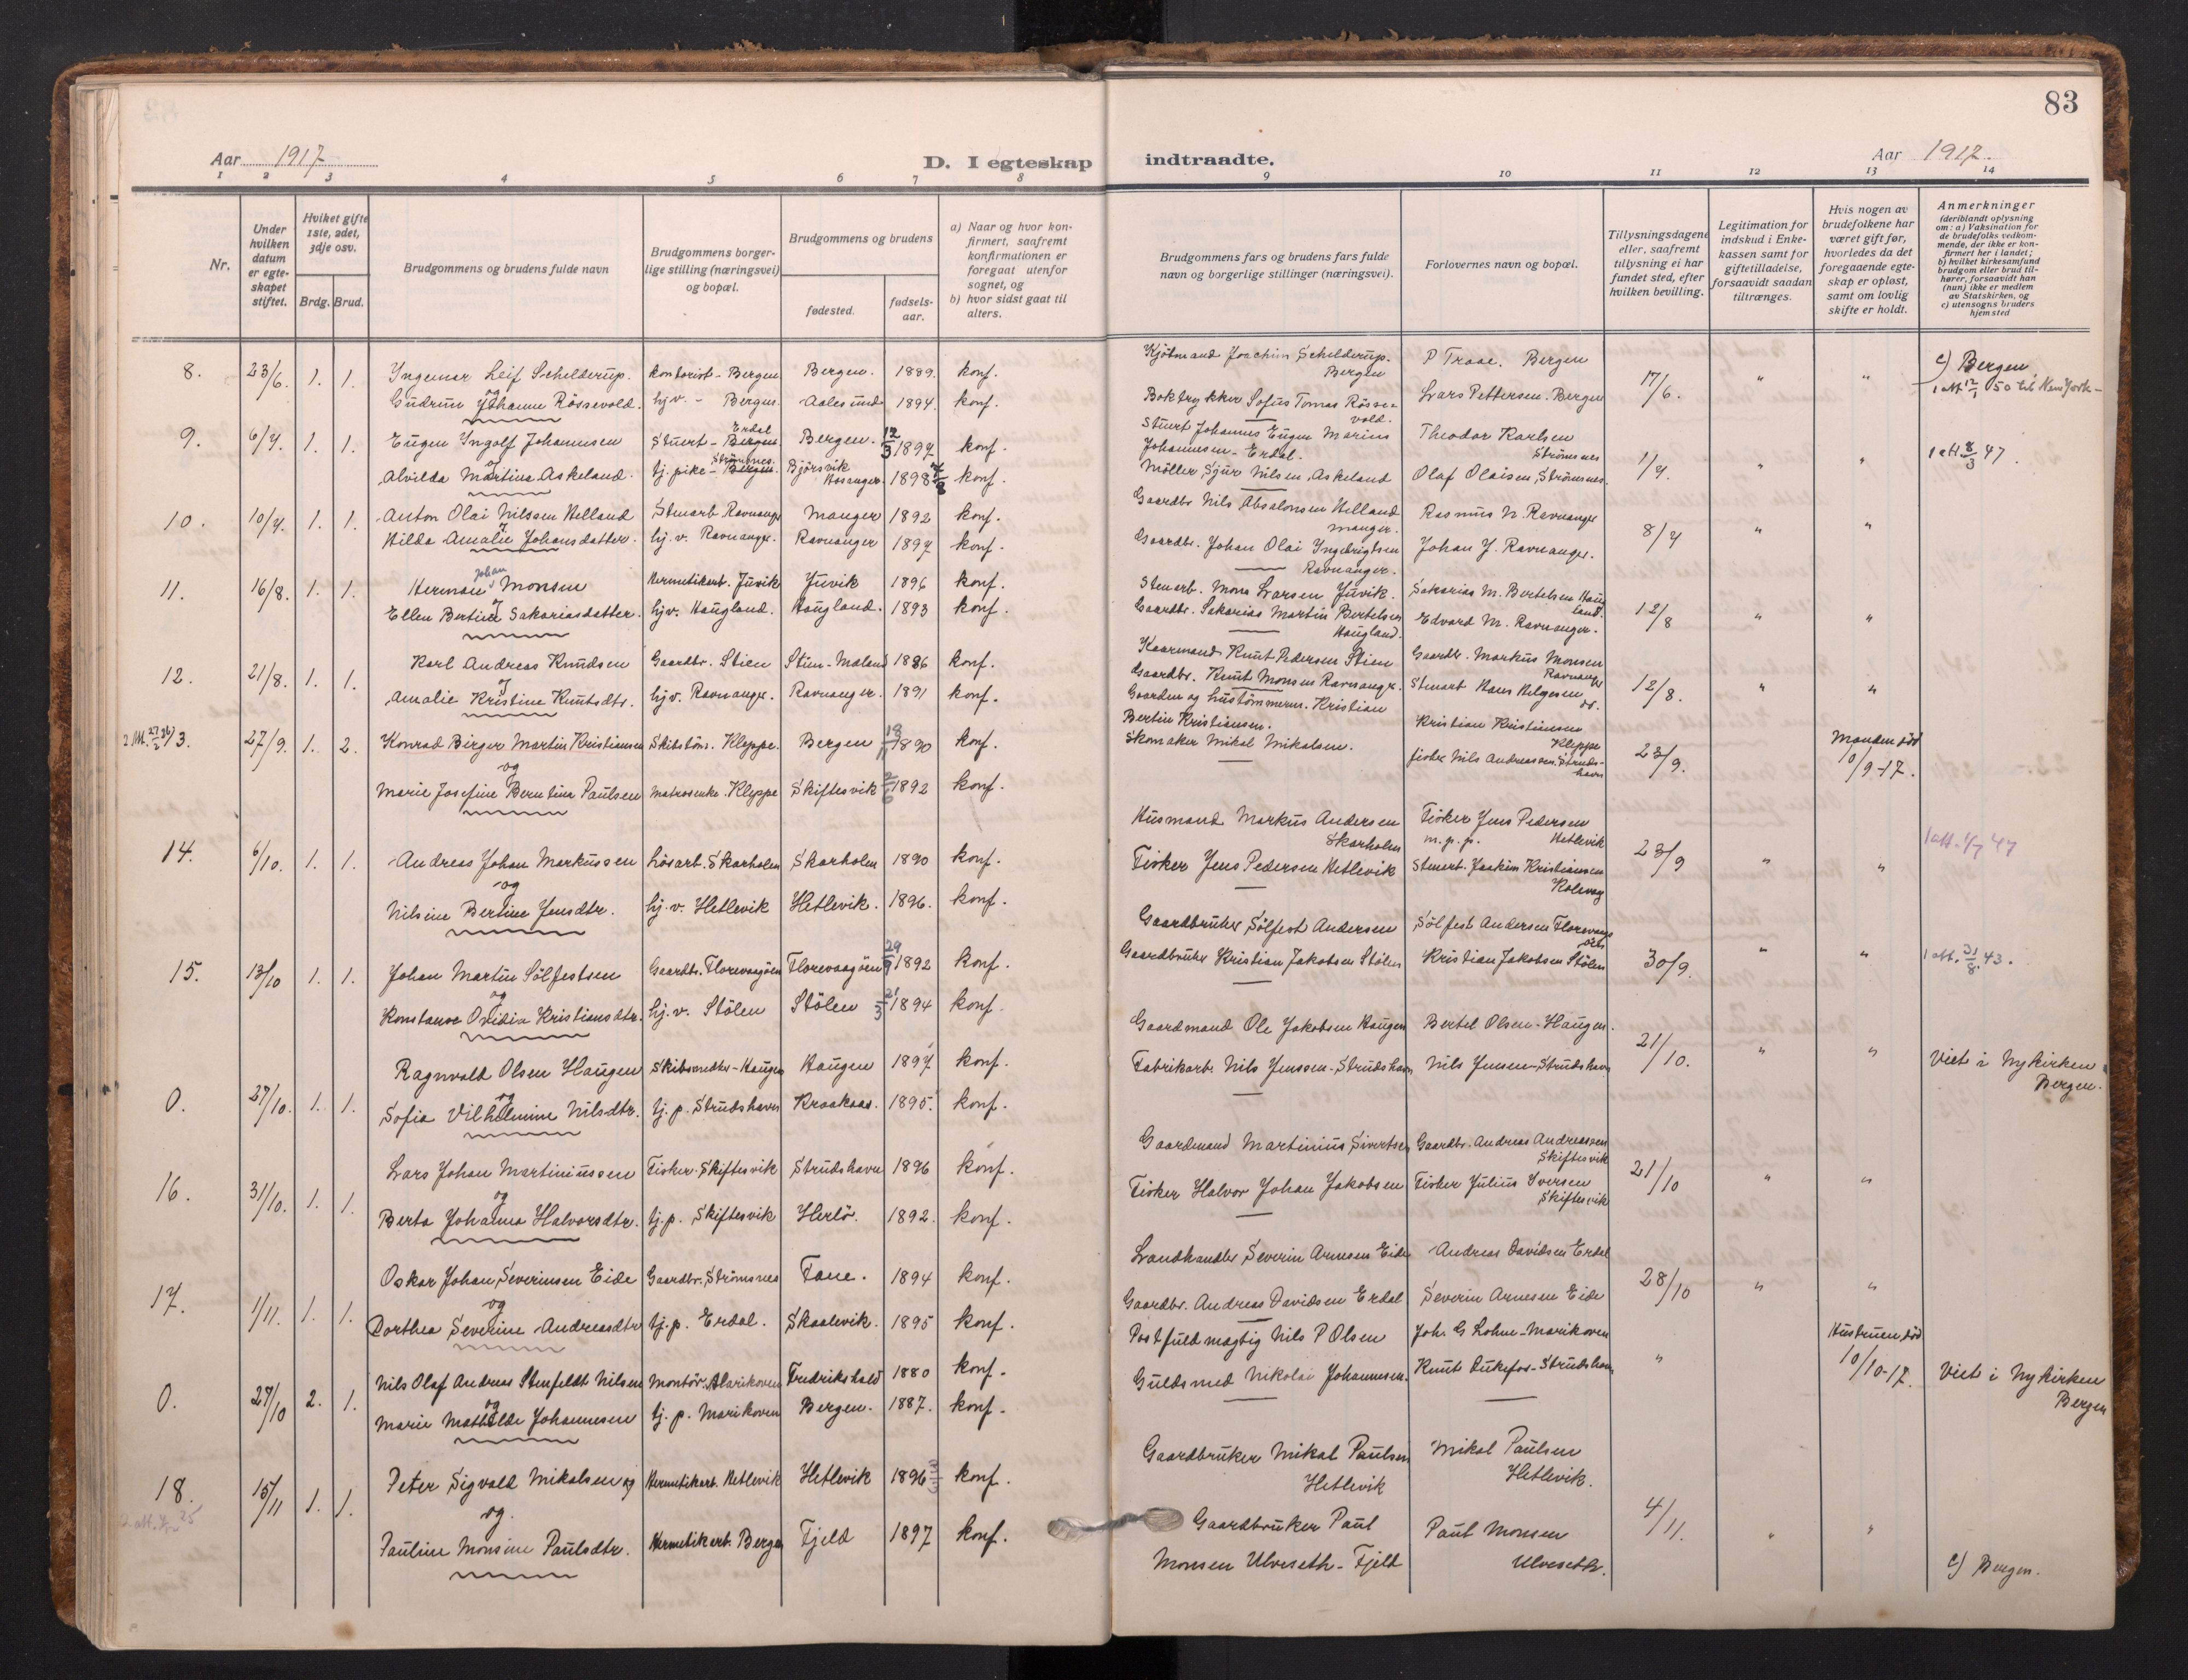 83
Aar 1917
D. I egteskap indtraadte.
Aar 1917.
1 2 3 4 5 6 7 8 9 10 11 12 13 14
Nr.
Under hvilken datum er egteskapet stiftet.
Hviket gifte 1ste, 2det, 3dje osv.
Brdg. Brud.
Brudgommens og brudens fulde navn
Brudgommens borgerlige stilling (næringsvei) og bopæl.
Brudgommens og brudens
fødested.
fødselsaar.
a) Naar og hvor konfirmert, saafremt konfirmationen er foregaat utenfor sognet, og
b) hvor sidst gaat til alters.
Brudgommens fars og brudens fars fulde navn og borgerlige stillinger (næringsvei).
Forlovernes navn og bopæl.
Tillysningsdagene eller, saafremt tillysning ei har fundet sted, efter hvilken bevilling.
Legitimation for indskud i Enkekassen samt for giftetilladelse, forsaavidt saadan tiltrænges.
Hvis nogen av brudefolkene har været gift før, hvorledes da det foregaaende egteskap er opløst, samt om lovlig skifte er holdt.
Anmerkninger
(deriblandt oplysning om: a) Vaksination for de brudefolks vedkommende, der ikke er konfirmert her i landet;
b) hvilket kirkesamfund brudgom eller brud tilhører, forsaavidt han (hun) ikke er medlem av Statskirken, og
c) utensogns bruders hjemsted
8. 23/6. 1. 1. Ingemar Leif Schelderup. kontorist - Bergen Bergen. 1889. konf. Kjøtmand Joachim Schelderup. Bergen P Traae. Bergen 17/6. " " c) Bergen.
og
Gudrun Johanne Røssevold. hj.v. - Bergen. Aalesund 1894. konf. Boktrykker Sofus Tomas Røssevold. Lars Pettersen. Bergen
9. 6/7. 1. 1. Eugen Ingolf Johannesen Stuert - Bergen Erdal Bergen. 12/3 1897 konf. Stuert Johannes Eugen Marius Johannesen - Erdal. Theodor Karlsen Strømsnes 1/7. " " 1 att. 8/3 47.
og
Alvilda Martina Askeland. tj. pike - Bergen. Strømsnes. Bjørsvik Hosanger. 1898 konf. Møller Sjur Nilsen Askeland Olaf Olaisen, Strømsnes.
10. 10/7. 1. 1. Anton Olai Nilssen Helland Stenarb. Ravnanger Manger 1892 konf. Gaardbr. Nils Absalonsen Helland Manger. Rasmus N. Ravnanger 8/7 " "
Hilda Amalie Johansdatter. hj.v. Ravnanger. Ravnanger 1897 konf. Gaardbr. Johan Olai Ingebrigtsen Ravnanger. Johan J. Ravnanger.
11. 16/8. 1. 1. Herman Johan Monsen Hermetikarb. Juvik Juvik 1896 konf. Stenarb. Mons Larsen Juvik. Sakarias M. Bertelsen Haugland. 12/8 " "
Ellen Bertine Sakariasdatter. hj.v. Haugland. Haugland. 1893 konf. Gaardbr. Sakarias Martin Bertelsen Haugland. Edvard M. Ravnanger.
12. 21/8. 1. 1. Karl Andreas Knudsen Gaardbr. Stien Stien - Mæland 1886 konf. Kaarmand Knut Pedersen Stien Gaardbr. Markus Monsen Ravnanger 12/8. " "
Amalie Kristine Knutsdtr. hj.v. Ravnanger. Ravnanger. 1891 konf. Gaardbr. Knut Monsen Ravnanger. Stenarb. Hans Helgesen do.
13. 27/9. 1. 2. Konrad Birger Martin Kristiansen Skibstøm. Kleppe. Bergen 1890 konf. Gaarden og hustømmerm. Kristian Bertin Kristiansen. Kristian Kristiansen Kleppe 23/9. Manden død 10/9-17.
og
Marie Josefine Berntina Paulsen Matrosenke. Kleppe Skiftesvik 2/6 1892 konf. Skomaker Mikal Mikalsen. fisker Nils Andreassen. Strudshavn
14. 6/10. 1. 1. Andreas Johan Markussen Løsarb. Skarholm Skarholm 1890 konf. Husmand Markus Andersen Skarholm Fisker Jens Pedersen m.p.p. Hetlevik 23/9 " " 1 att. 1/7 47
og
Nilsine Bertine Jensdtr. hj.v. Hetlevik Hetlevik. 1896. konf. Fisker Jens Pedersen Hetlevik Stenarb. Joakim Kristiansen Kolevaag
15. 13/10 1. 1. Johan Martin Sølfestsen Gaardbr. Florevaagøen Florevaagøen 29/9 1892 konf. Gaardbruker Sølfest Andersen Sølfest Andersen Florevaagøen 30/9. " " 1 att. 31/8. 43.
og
Konstanse Ovidia Kristiansdtr. hj.v. Stølen Stølen 21/3 1894 konf. Gaardbruker Kristian Jakobsen Stølen Kristian Jakobsen Stølen
0. 27/10. 1. 1. Ragnvald Olsen Haugen Skibssmedbr - Haugen Haugen 1897 konf. Gaardmand Ole Jakobsen Haugen Bertel Olsen - Haugen. 21/10. " " Viet i Nykirken Bergen.
og
Sofia Vilhelmine Nilsdtr. tj.p. Strudshavn Kraakaas. 1895. konf. Fabrikarb. Nils Jenssen - Strudshavn Nils Jensen - Strudshavn
16. 31/10. 1. 1. Lars Johan Martiniussen Fisker. Skiftesvik Strudshavn 1896 konf. Gaardmand Martinius Sivertsen Gaardbr. Andreas Andreassen Skiftesvik 21/10 " "
og
Berta Johanna Halvorsdtr. tj.p. Skiftesvik Herlø. 1892. konf. Fisker Halvor Johan Jakobsen Fisker Julius Iversen Skiftesvik
17. 1/11. 1. 1. Oskar Johan Severinsen Eide Gaardbr. Strømsnes Fane. 1894 konf. Landhandler Severin Arnesen Eide Andreas Davidsen Erdal 28/10 " "
og
Dorthea Severine Andreasdtr tj.p. Erdal. Skaalevik. 1895 konf. Gaardbr. Andreas Davidsen Erdal Severin Arnesen Eide
0. 27/10 2. 1. Nils Olaf Andreas Stenfeldt Nilsen Montør. Marikoven Fredrikshald 1880 konf. Postfuldmægtig Nils P Olsen Joh. G Lohne - Marikoven " Hustruen død 10/10-17. Viet i Nykirken Bergen
og
Marie Mathilde Johannesen tj.p. Marikoven Bergen. 1887. konf. Guldsmed Nikolai Johannesen. Knut Dukefos - Strudshavn
18. 15/11 1. 1. Peter Sigvald Mikalsen og Hermetikarb. Hetlevik Hetlevik 1896 konf. Gaardbruker Mikal Paulsen Hetlevik Mikal Paulsen Hetlevik. 4/11. " "
og.
Pauline Monsine Paulsdtr. Hermetikarb. Bergen Fjeld 1897 konf. Gaardbruker Paul Monsen Ulveseth - Fjeld Paul Monsen Ulveseth. c) Bergen.